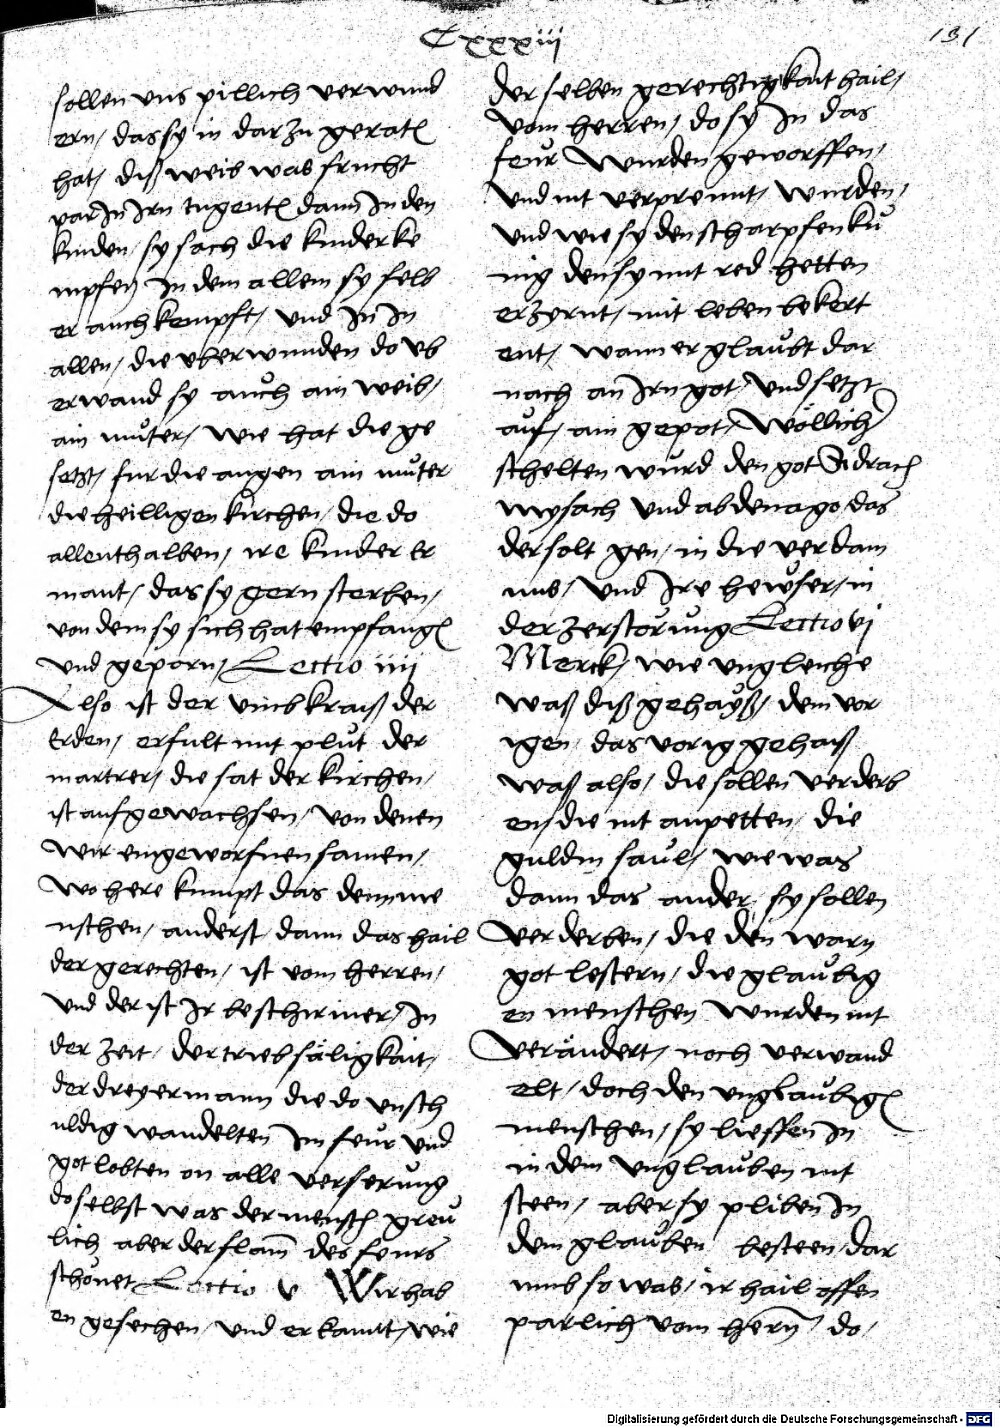 Cxxxiii
131
sollen uns pillich verwund
ern, das sy in dar zu geraten
hat, diß weib was frucht
par in irn tugenten dann in den
kinden, sy sach die kinder ke
mpfen, in dem allem sy selb
er auch kempft, und in in
allen, die uberwunden do ub
erwand sy auch ain weib,
ain muter, wie hat die ge
setzt, fur die augen ain muter
die heilligen kirchen, die do
allenthalben, ire kinder er
mant, das sy gern sterben,
von dem sy sich hat empfangen
und geporn, Lectio iiii
Also ist der umbkraiß der
Erden, erfult mit plut der
martrer, die sat der kirchen,
ist aufgewachsen, von denen
wir eingeworfnen samen,
wo here kumpt das den me
nschen, anderst dann das hail
der gerechten, ist vom herren,
und der ist ir beschirmer, in
der zeit, der triebsäligkait,
der dreyer mann die do unsch
uldig wandelten im feur und
got lobten on alle versrung
doselbst was der mensch greu
lich aber der flam des feurs
schonet Lectio v Wir hab
en gesechen, und erkannt, wie
der selben gerechtigkait hail,
vom herren, do sy in das
feur wurden geworffen,
und nit verprennt, wurden,
und wie sy den scharpfen ku
nig den sy mit red hetten
erzyrnt, mit leben bekert
ent, wann er glaubt dar
nach an irn got, und setzt
auf, ain gepot, Wöllicher
schelten wurd den got Sidrach
mysach und abdenago, das
der solt gen, in die verdam
nus, und ire hewser, in
der zerstörung Lectio vi
Merck, wie ungleiche
waß diß gehayß, dem vor
igen, das vorig gehaiß
waß also, die sollen verderb
en, die nit anpetten, die
guldin saul, wie was
dann das ander, sy sollen
verderben, die den warn
got lestern, die glaubig
en menschen wurden nit
verändert, noch verwand
elt, doch den unglaubigen
menschen, sy lieffen in
in dem unglauben nit
steen, aber sy pliben in
dem glauben besteen, dar
umb so was, ir hail offen
parlich vom hern, do,
Digitalisierung gefördert durch die Deutsche Forschungsgemeinschaft - DFG